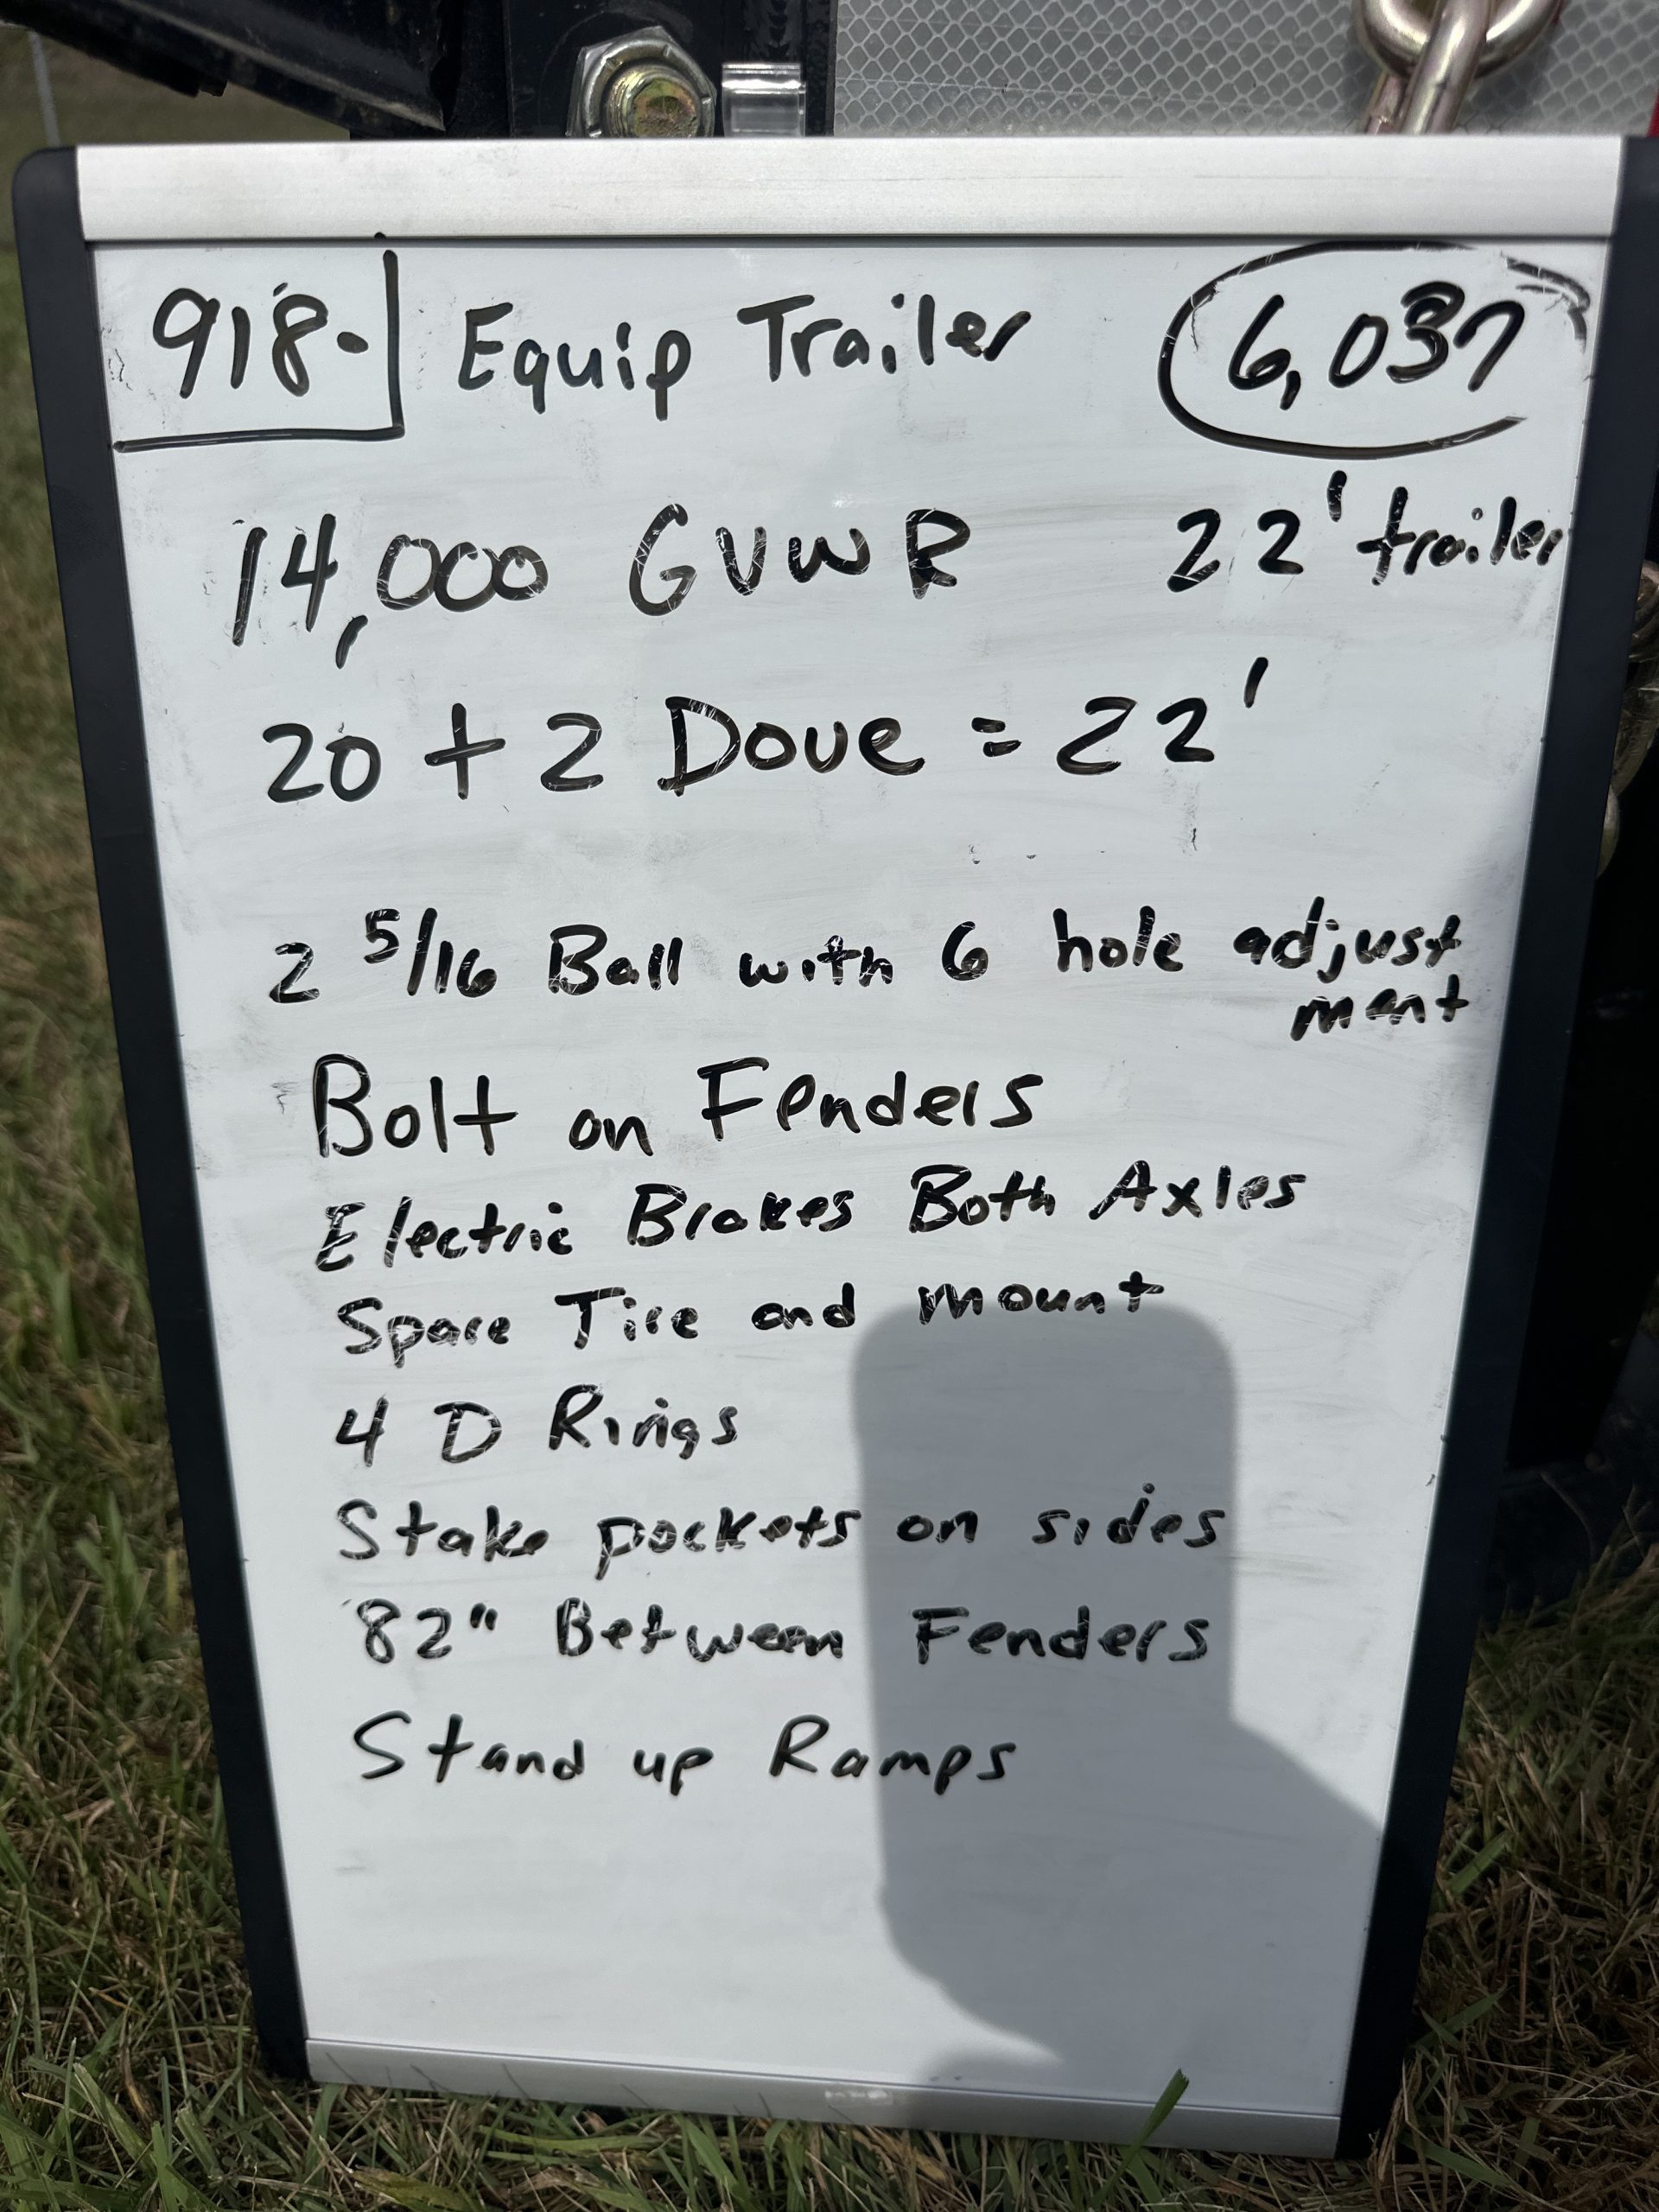 918. Equip Trailer 6,037
14,000 GVWR 22' trailer
20 + 2 Dove = 22'
2 5/16 Ball with 6 hole adjust
ment
Bolt on Fenders
Electric Brakes Both Axles
Spare Tire and mount
4 D Rings
Stake pockets on sides
82" Between Fenders
Stand up Ramps